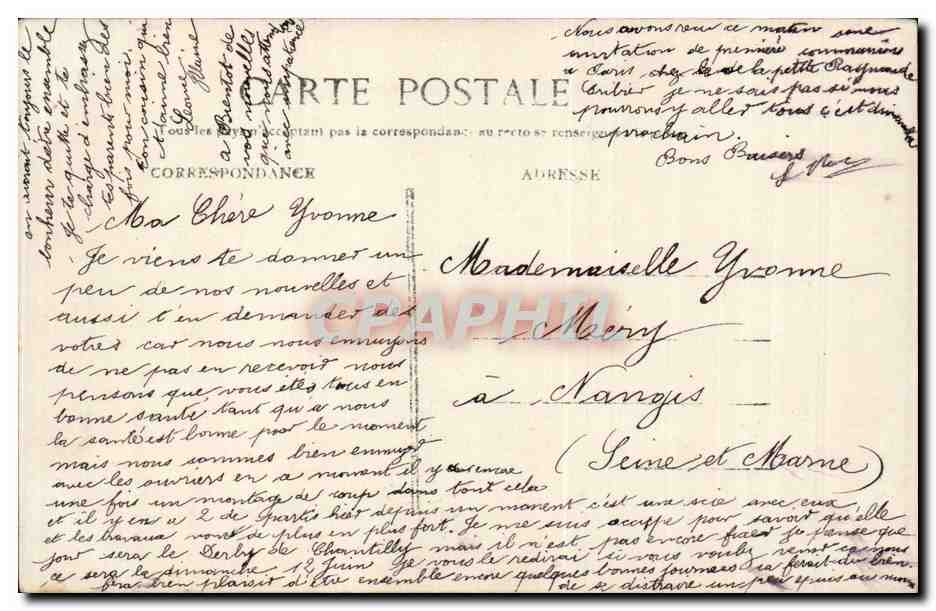 CARTE POSTALE
Tous les pays acceptant pas la correspondance au recto se renseigner
CORRESPONDANCE
ADRESSE
Ma Chère Yvonne
Je viens te donner un
peu de nos nouvelles et
aussi t'en demander des
votres car nous nous ennuyons
de ne pas en recevoir nous
pensons que vous êtes tous en
bonne santé tant qu'a nous
la santé est bonne pour le moment
mais nous sommes bien ennuyé
avec les ouvriers en a moment il y a encore
une fois un montage de coup dans tout cela
et il y en a 2 de partis hier depuis un moment c'est une scie avec eux
et les travaux vont de plus en plus fort. Je me suis occupé pour savoir qu'elle
jour sera le Derby de Chantilly mais il n'est pas encore fixer je pense que
ce sera le dimanche 12 Juin je vous le redirai si vous voulez venir ca nous
fra bien plaisir d'être ensemble encore quelques bonnes journées ca ferait du bien
de se distraire un peu
on aurait toujours le
bonheur d'être ensemble
Je te quitte et te
charge d'embrasser
tes parents bien des
fois pour moi.
Ton cousin qui
t'aime bien
A Bientot de
vos nouvelles
Nous avons reçu ce matin une
invitation de première communion
a Paris chez la petite
je ne sais pas si nous
pourrons y aller tous c'est dimanche
prochain.
Bons Baisers
Mademoiselle Yvonne
Méry
à Nangis
(Seine et Marne)
CPAPHIL